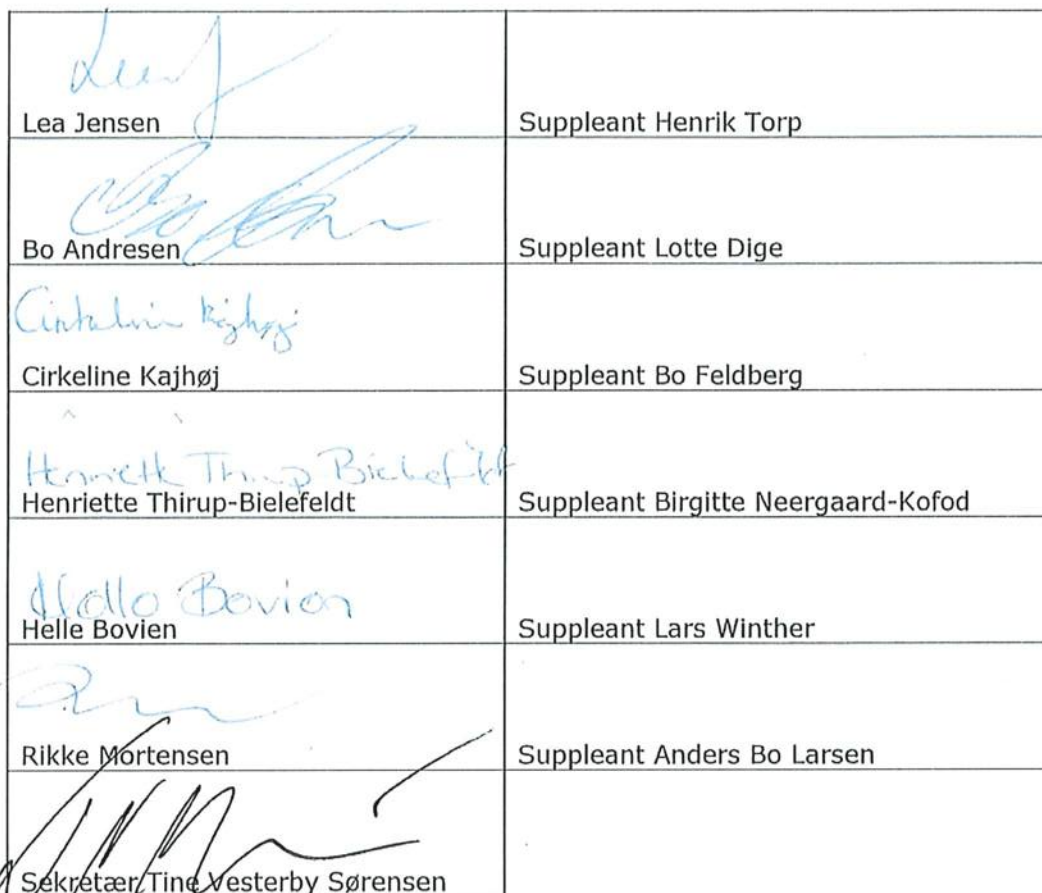 Lea Jensen
Suppleant Henrik Torp
Bo Andresen
Suppleant Lotte Dige
Cirkeline Kajhøj
Cirkeline Kajhøj
Suppleant Bo Feldberg
Henriette Thirup Bielefeldt
Henriette Thirup-Bielefeldt
Suppleant Birgitte Neergaard-Kofod
Helle Bovien
Helle Bovien
Suppleant Lars Winther
Rikke Mortensen
Suppleant Anders Bo Larsen
Sekretær Tine Vesterby Sørensen